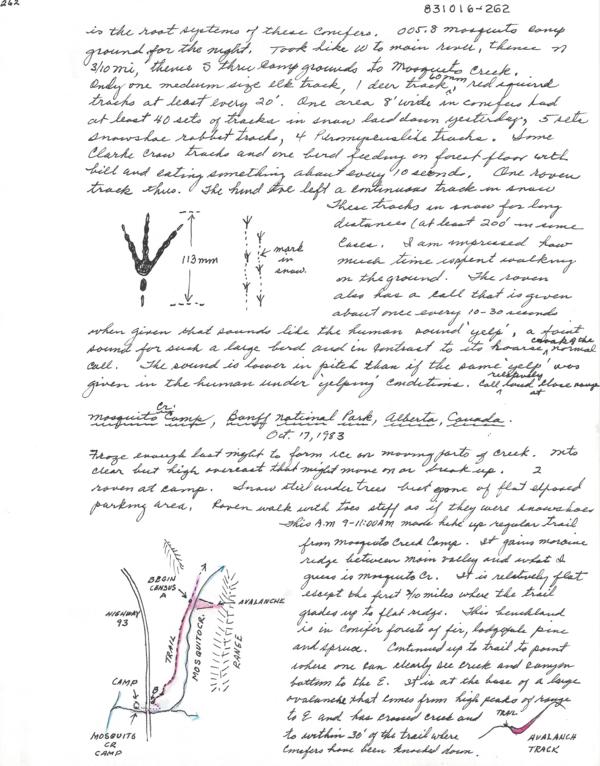 262
831016-262
is the root systems of these conifers. 005.8 mosquito camp
ground for the night. Took hike W to main river, thence N
3/10 mi, thence S thru Camp grounds to Mosquito Creek.
Only one medium size elk track, 1 deer track, 60mm red squirrel
tracks at least every 20'. One area 8' wide in conifers had
at least 40 sets of tracks in snow laid down yesterday, 5 sets
snowshoe rabbit tracks, 4 Peromyscuslike tracks. Some
Clarke Crow tracks and one bird feeding on forest floor with
bill and eating something about every 10 seconds. One raven
track thus. The hind toe left a continuous track in snow
These tracks in snow for long
distances (at least 200' in some
Cases. I am impressed how
much time is spent walking
on the ground. The raven
also has a call that is given
about once every 10-30 seconds
113mm
mark
in
snow.
when given that sounds like the human sound 'yelp', a faint
sound for such a large bird and in contrast to its hoarse, croak of the normal
call. The sound is lower in pitch than if the same 'yelp' was
given in the human under 'yelping' conditions. Call relatively loud at close range
Mosquito Cr. Camp, Banff National Park, Alberta, Canada.
Oct. 17, 1983
Froze enough last night to form ice on moving parts of creek. Mts
clear but high overcast that might move on or break up. 2
raven at camp. Snow still under trees but gone of flat exposed
parking area. Raven walk with toes stiff as if they were snowshoes
This A.M 9-11:00AM made hike up regular trail
from Mosquito Creek Camp. It gains moraine
ridge between main valley and what I
guess is Mosquito Cr. It is relatively flat
exept the first 3/10 miles where the trail
grades up to flat ridge. This benchland
is in conifer forests of fir, lodgepole pine
and spruce. Continued up to trail to point
where one can clearly see creek and canyon
bottom to the E. It is at the base of a large
avalanche that comes from high peaks of range
to E and has crossed creek and
to within 30' of the trail where
Conifers have been knocked down.
BEGIN
CENSUS
A
AVALANCHE
HIGHWAY
93
TRAIL
MOSQUITO CR.
RANGE
CAMP
MOSQUITO
CR
CAMP
TRAIL
AVALANCH
TRACK